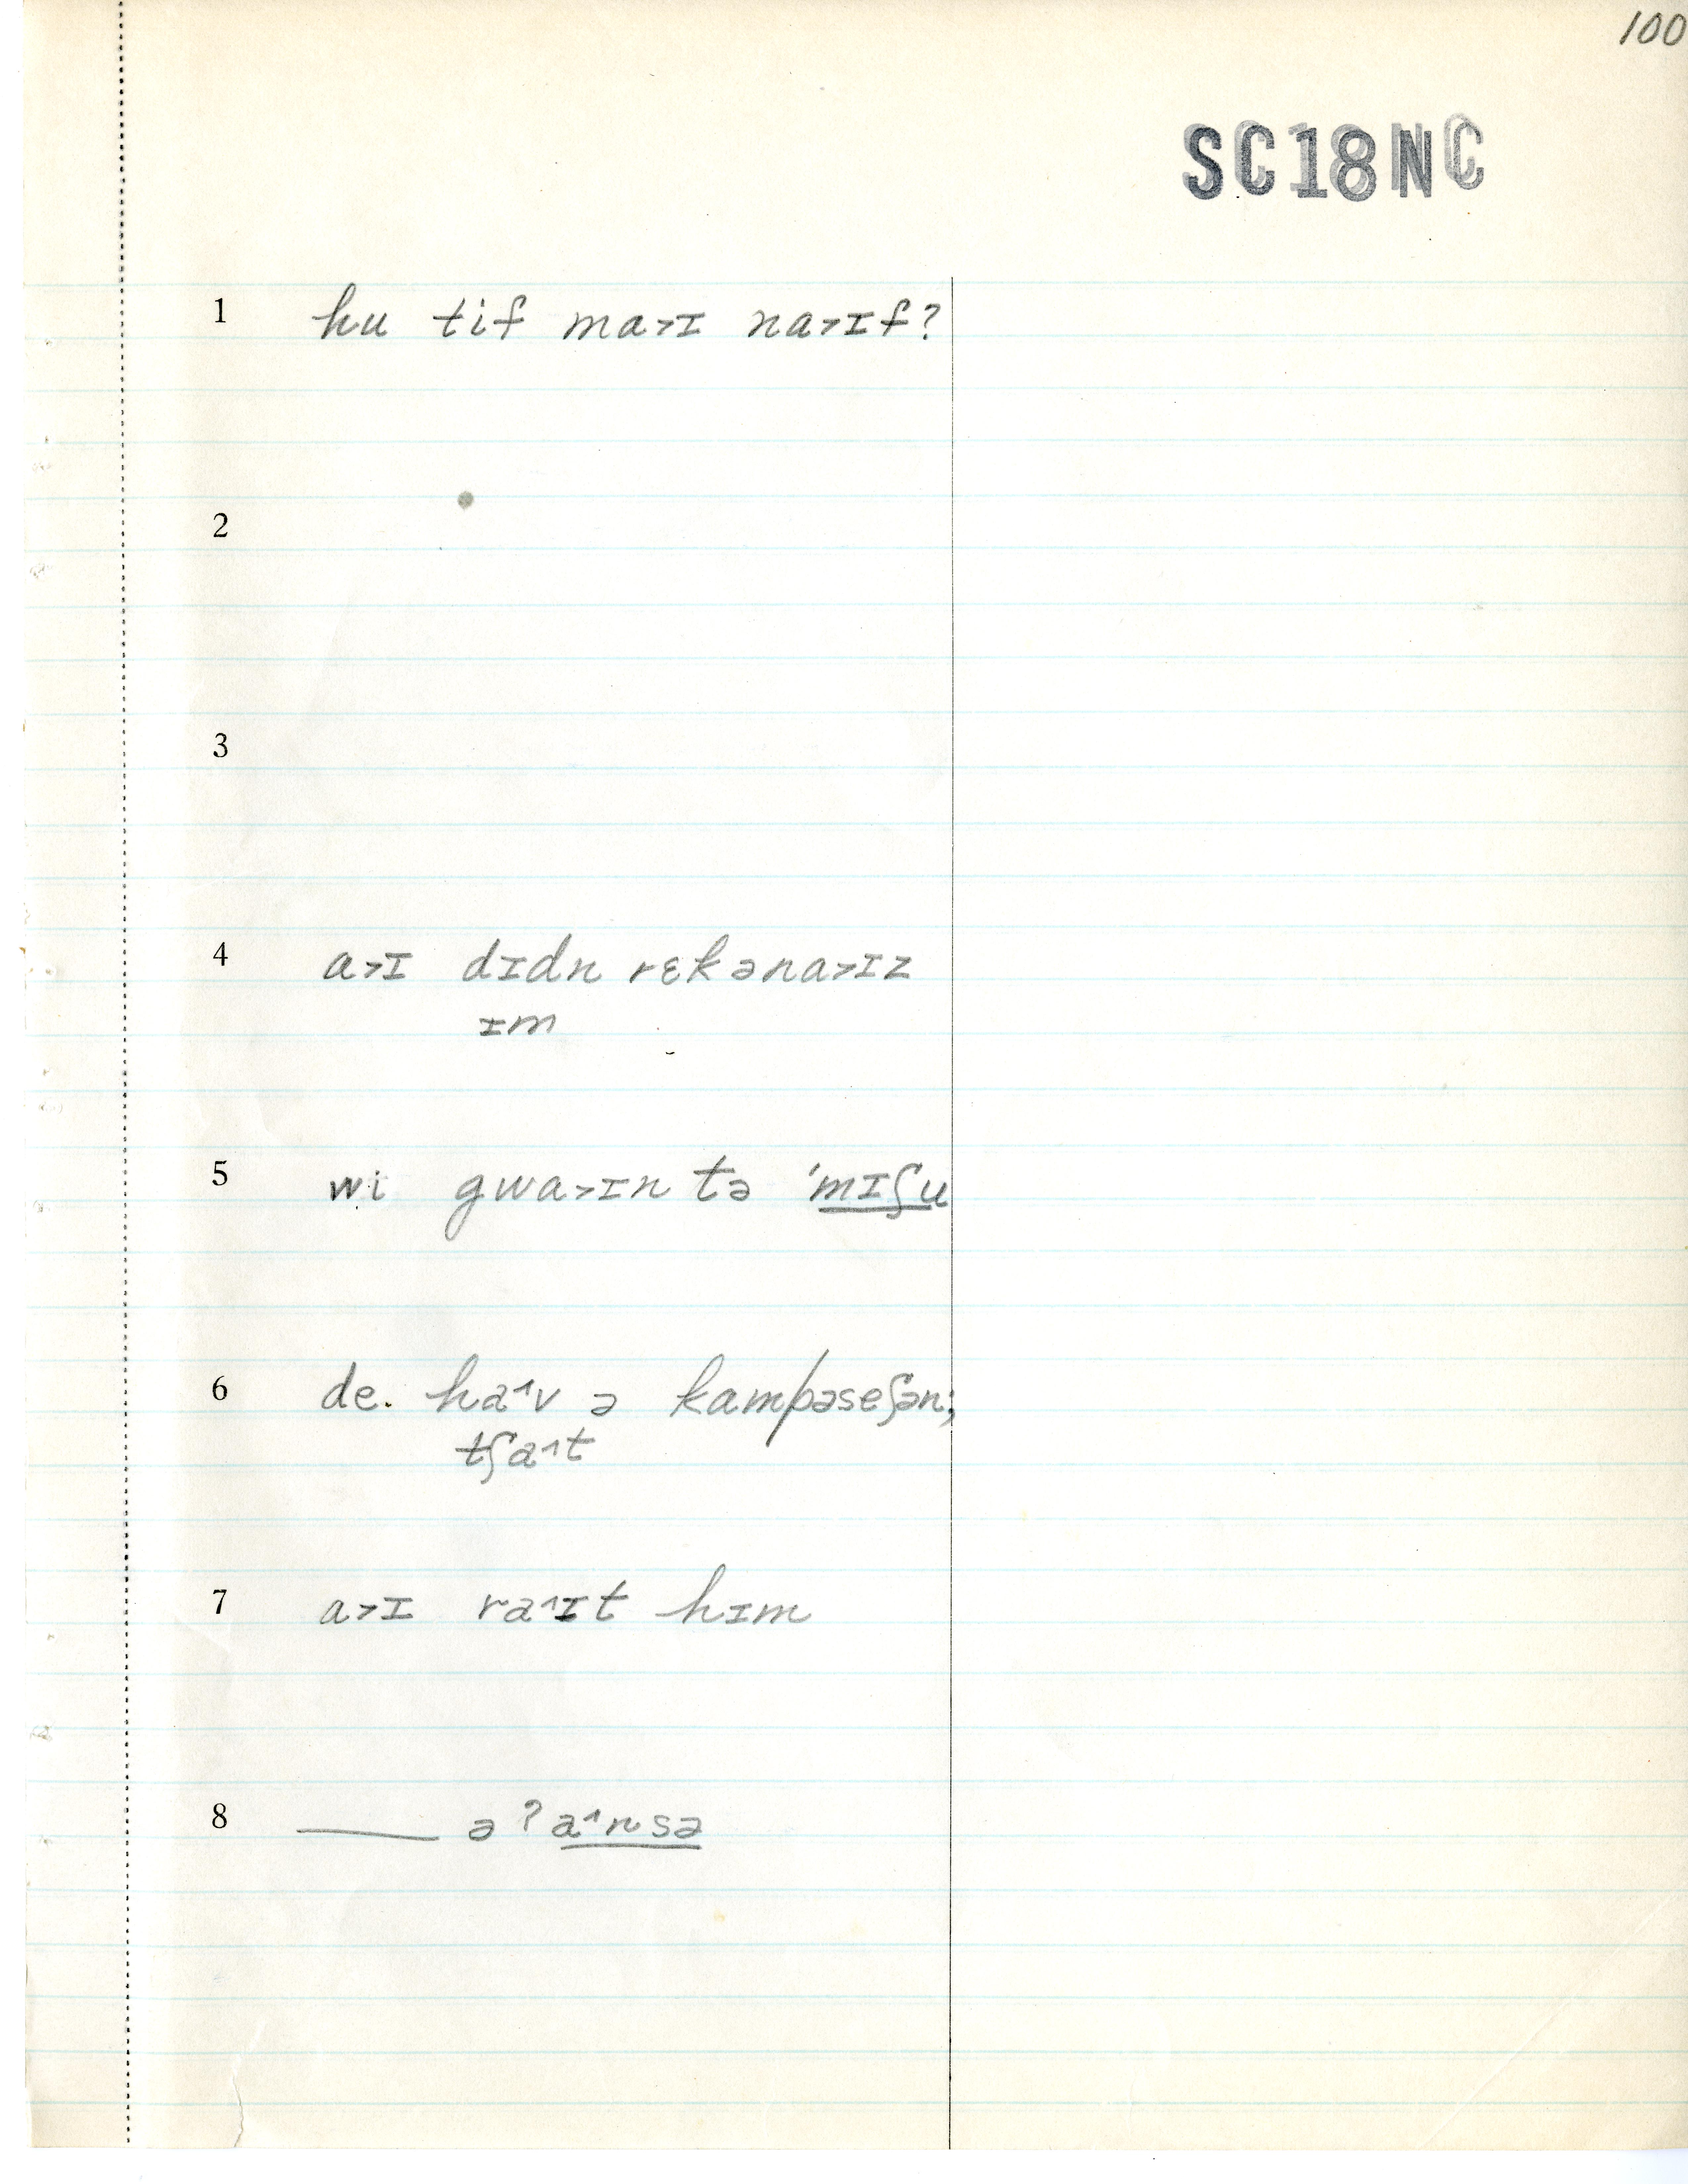 100
SC18NC
1 hu tif ma˃ɪ na˃ɪf?
2
3
4 a˃ɪ dɪdn rɛkəna˃ɪz
ɪm
5 wi gwa˃ɪn tə ˈmɪʃu
6 de. ha˄v ə kampəseʃən;
tʃa˄t
7 a˃ɪ ra˄ɪt hɪm
8 ___ ə ʔa˄nsə